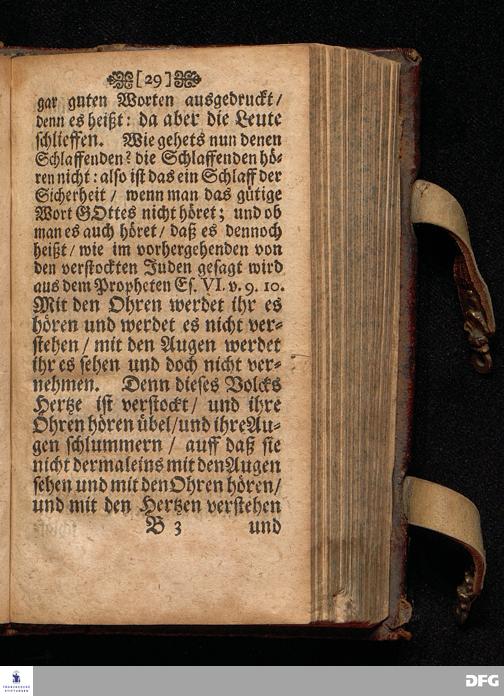 [29]
gar guten Worten ausgedruckt/
denn es heißt: da aber die Leute
schlieffen. Wie gehets nun denen
Schlaffenden? die Schlaffenden hö-
ren nicht: also ist das ein Schlaff der
Sicherheit / wenn man das gütige
Wort GOttes nicht höret; und ob
man es auch höret / daß es dennoch
heißt/ wie im vorhergehenden von
den verstockten Juden gesagt wird
aus dem Propheten Es. VI. v. 9. 10.
Mit den Ohren werdet ihr es
hören und werdet es nicht ver-
stehen/ mit den Augen werdet
ihr es sehen und doch nicht ver-
nehmen. Denn dieses Volcks
Hertze ist verstockt/ und ihre
Ohren hören übel/und ihre Au-
gen schlummern / auff daß sie
nicht dermaleins mit den Augen
sehen und mit den Ohren hören/
und mit den Hertzen verstehen
B 3 und
FRANCKESCHE
STIFTUNGEN
DFG